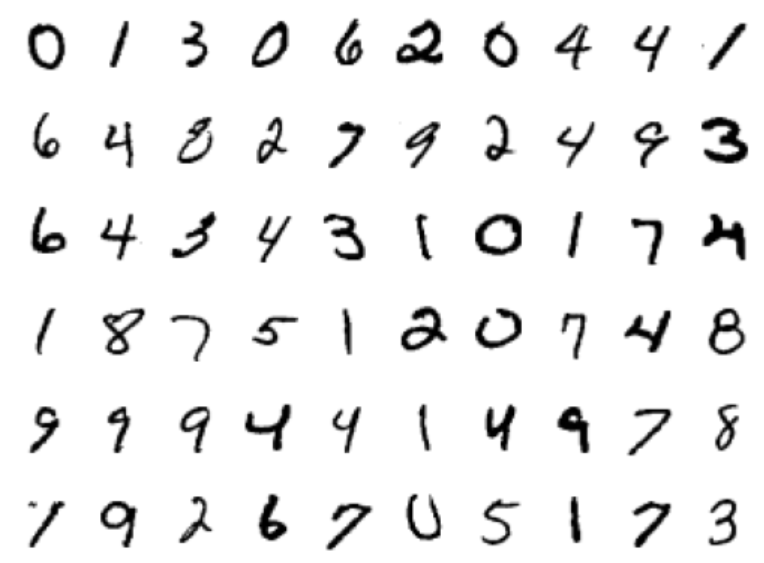 0 1 3 0 6 2 0 4 4 1
6 4 8 2 7 9 2 4 9 3
6 4 3 4 3 1 0 1 7 4
1 8 7 5 1 2 0 7 4 8
9 9 9 4 4 1 4 9 7 8
1 9 2 6 7 0 5 1 7 3